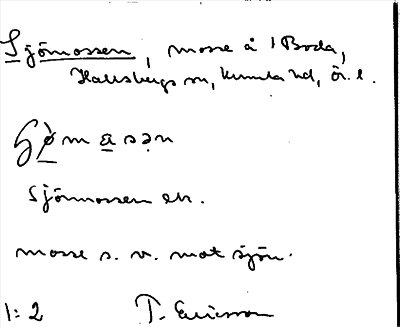 Sjömossen, mosse å 1 Boda,
Hallsbergs sn, Kumla hd, Ör. l.
Sjömossen en.
mosse s. v. mot sjön.
1:2 T. Ericsson